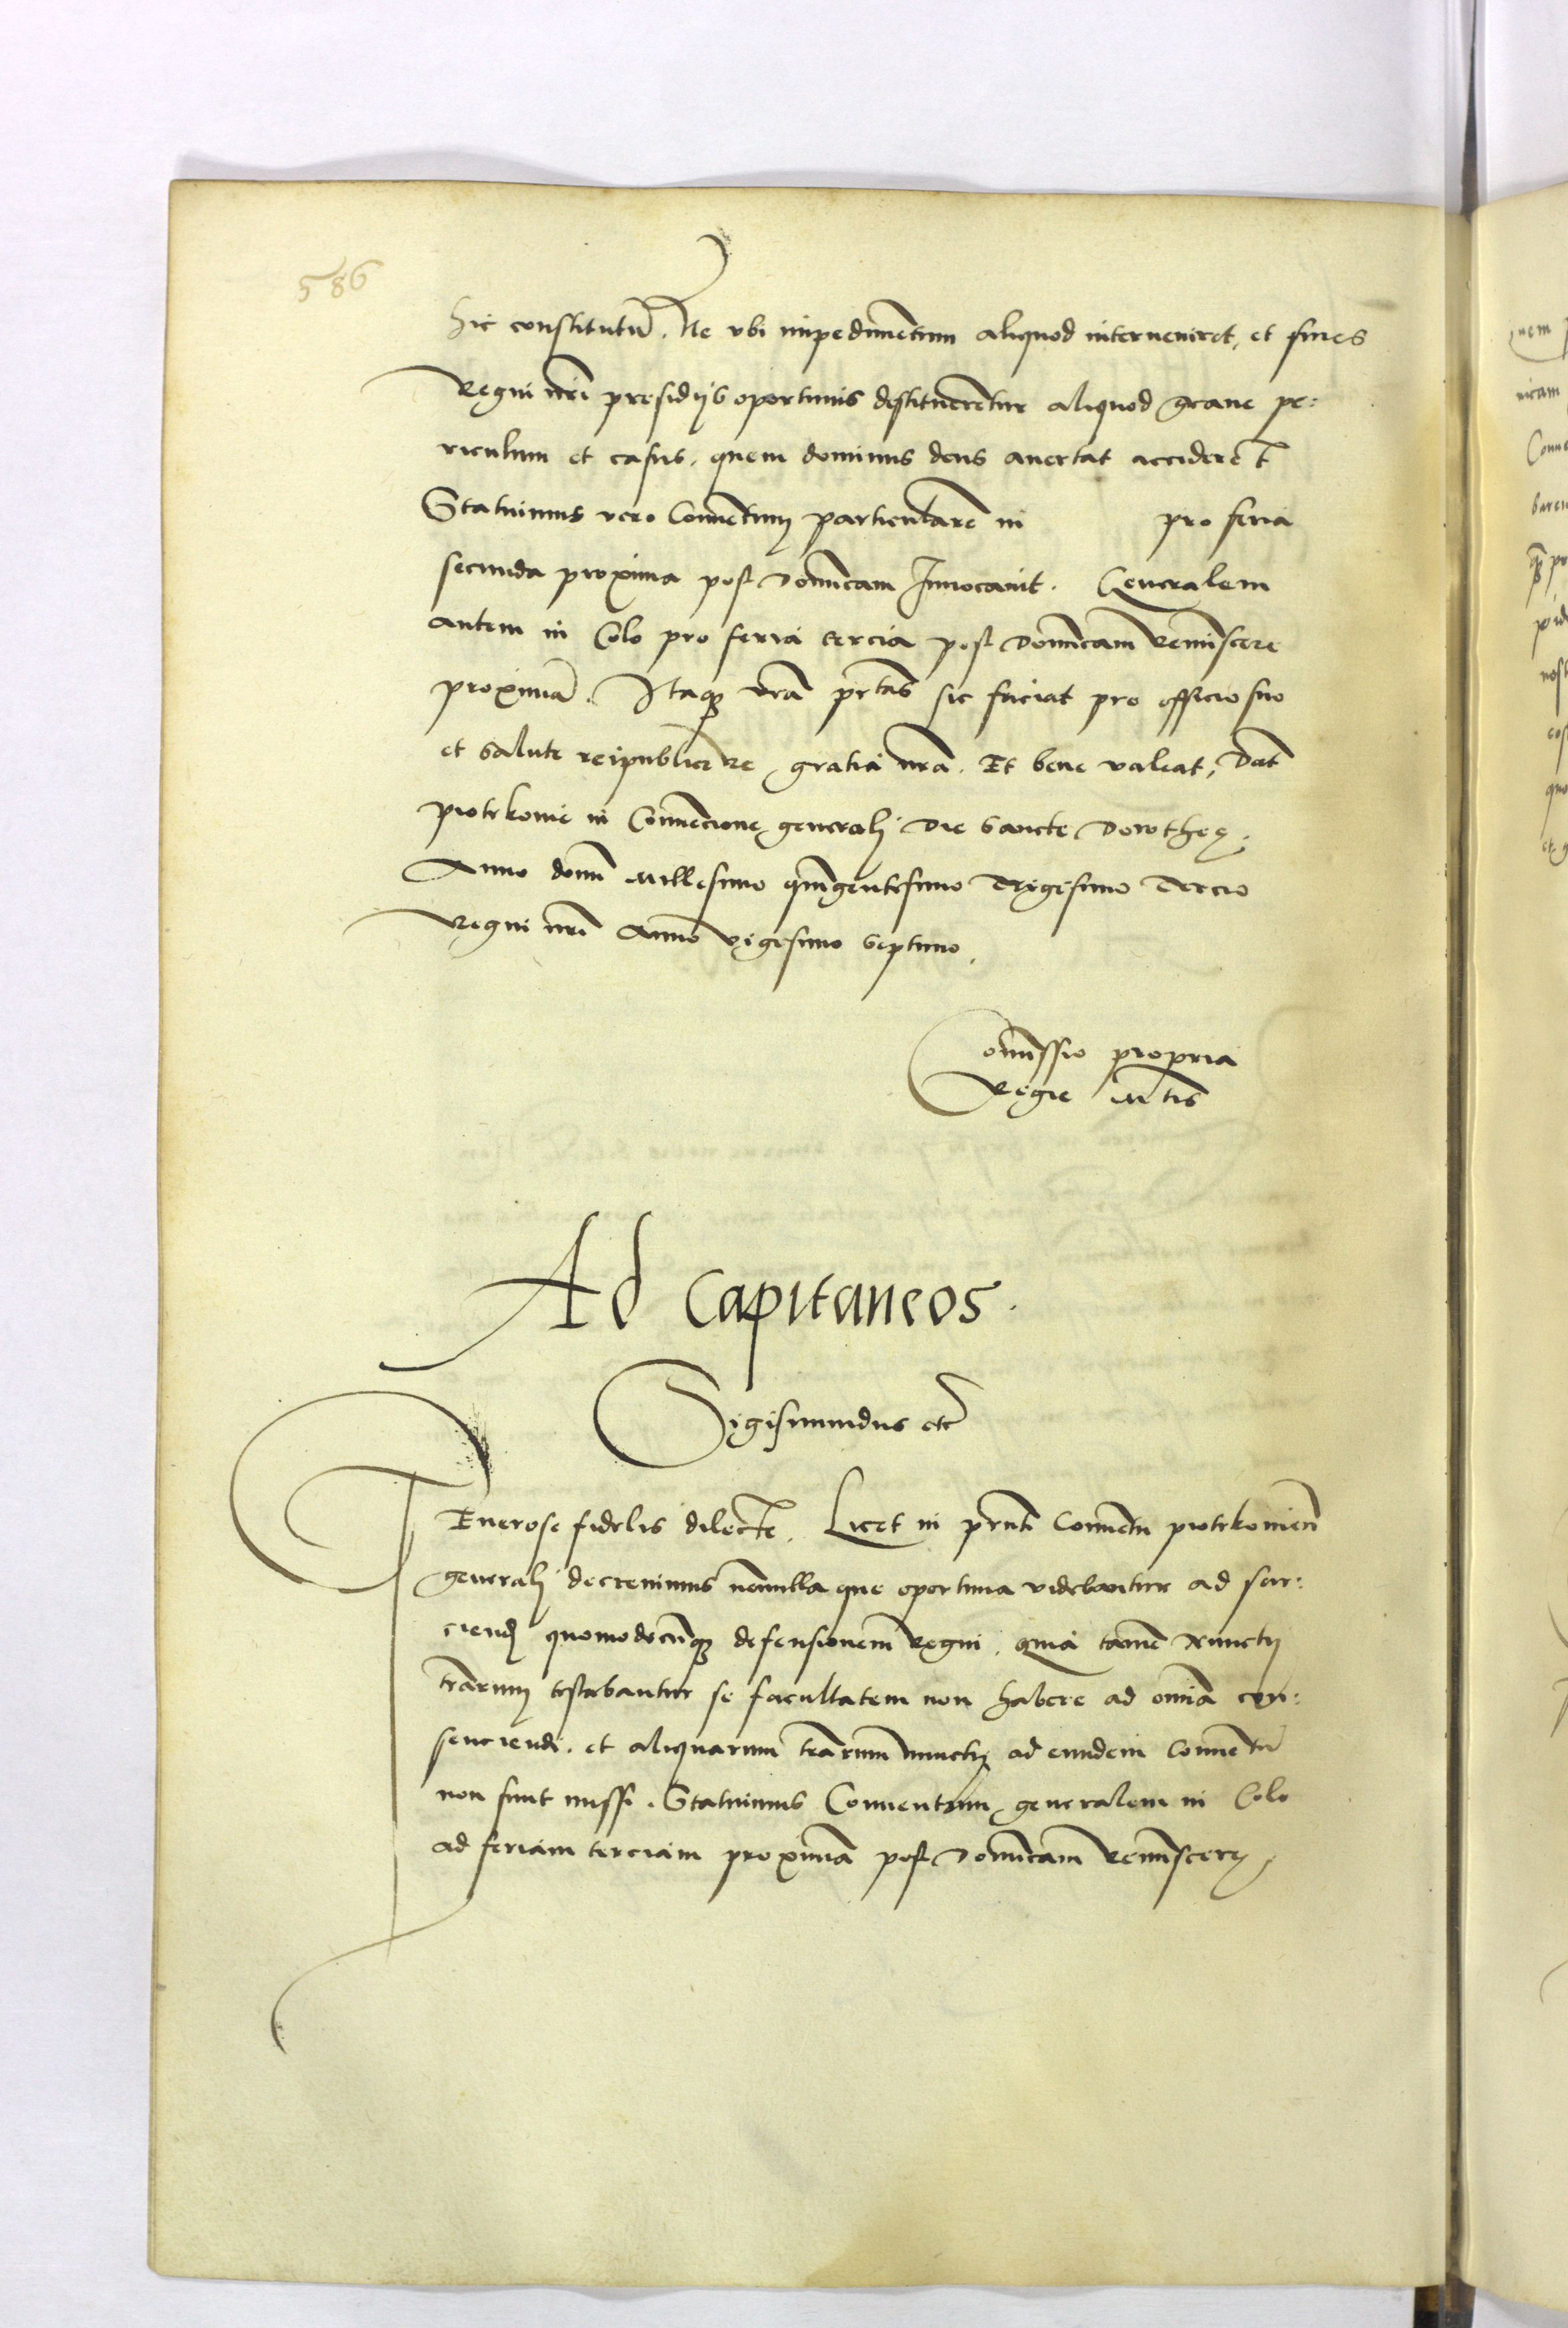 586
hic constitutū. Ne vbi impedimentum aliquod interueniret, et fines
Regni nrī presidijs oportunis destituerentur aliquod graue pe:
riculum et casus, quem dominus deus auertat acciderēt
Statuimus vero Conuentum particularē in pro feria
secunda proxima post Dominicam Inuocauit. Generalem
autem in Colo pro feria tercia post Dominicam Reminiscere
proximā. Itaq3 vrā prtas sic faciat pro officio suo
et salute reipublice gratia nrā. Et bene valeat, Dat
piotrkouie in Conuencione generali die Sancte Dorothee,
Anno domī Millesimo quingentesimo Trigesimo Tercio
Regni nrī Anno vigesimo septimo.
Comissio propria
Regie Mtis
Ad Capitaneos.
Sigismundus etc
GEnerose fidelis dilecte. Licet in prntī Conuentu piotrkouien
generali decreuimus nonnulla que oportuna videbantur ad sar:
ciend quomodocunq3 defensionem Regni. quia tamē Nunctij
trārum testabantur se facultatem non habere ad omīa con:
senciendi. et aliquarum trārum nunctij ad eundem Conuentū
non sunt missi. Statuimus Conuentum generalem in Colo
ad feriam terciam proximā post Dominicam Reminiscere,